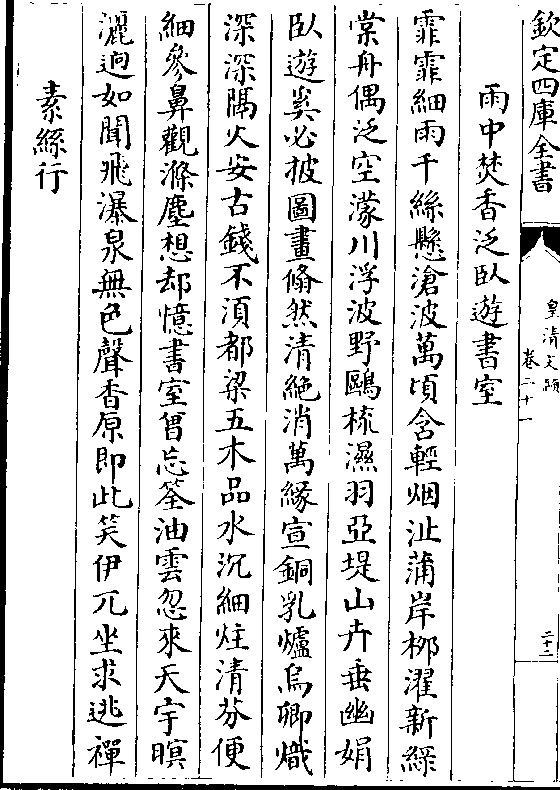 欽定四庫全書
皇清文頴
卷二十一
二十二
雨中焚香泛臥遊書室
霏霏細雨千絲懸滄波萬頃含輕烟沚蒲岸栁濯新緑
棠舟偶泛空濛川浮波野鷗梳濕羽亞堤山卉垂幽娟
臥遊奚必披圖畫翛然清絶消萬緣宣銅乳爐烏卿熾
深深隔火安古錢不湏都梁五木品水沉細炷清芬便
細參鼻觀滌塵想却憶書室曾忘筌油雲忽來天宇暝
灑逈如聞飛瀑泉無色聲香原即此笑伊兀坐求逃禪
素絲行